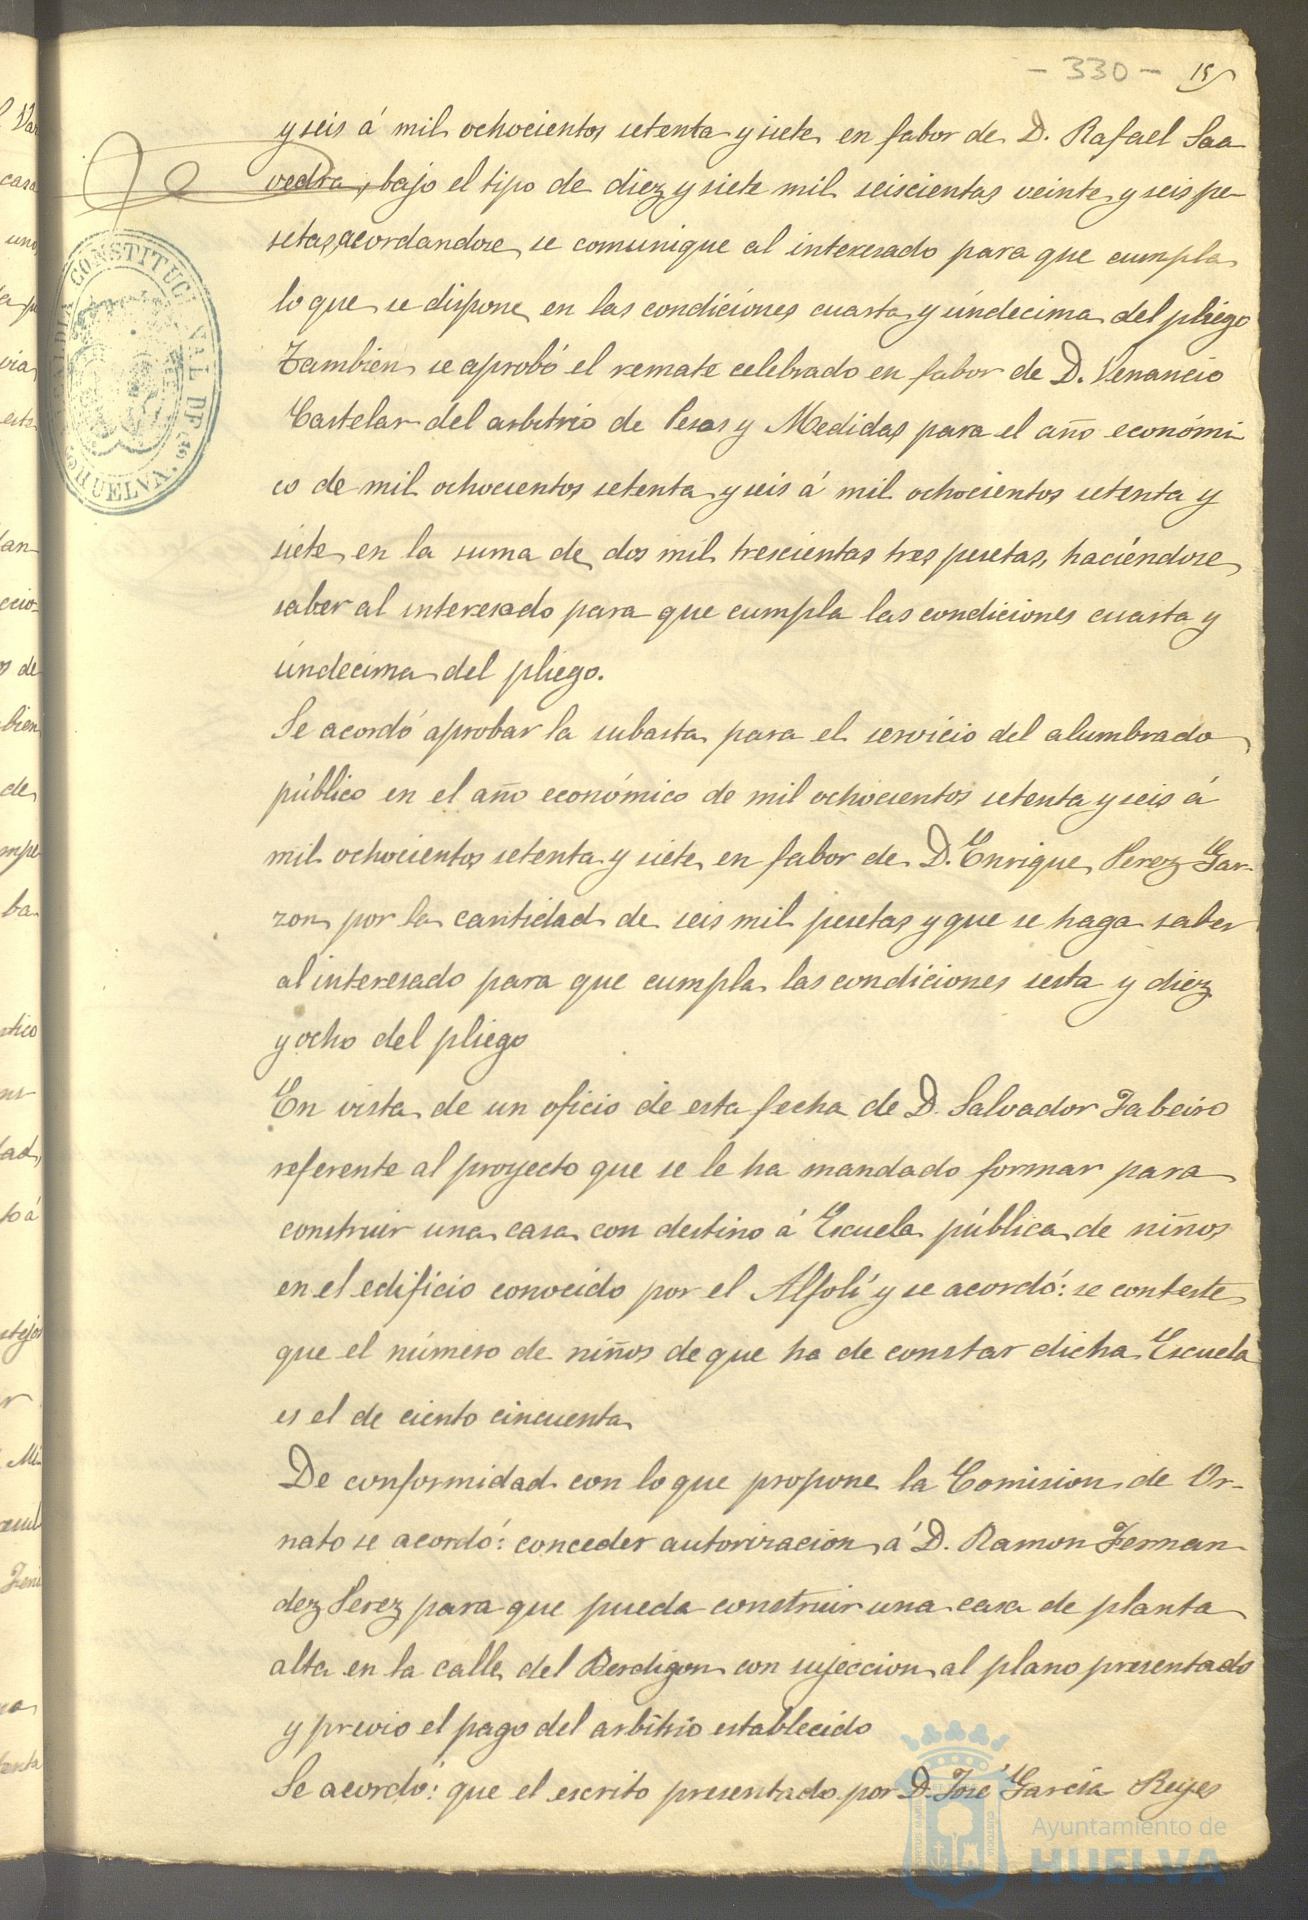 - 330 -
y seis á mil ochocientos setenta y siete en fabor de D. Rafael Saa
vedra, bajo el tipo de diez y siete mil seiscientas veinte y seis pe-
setas, acordandose se comunique al interesado para que cumpla
lo que se dispone en las condiciones cuarta y úndecima del pliego
Tambien se aprobó el remate celebrado en fabor de D. Venancio
Castelar del arbitrio de Pesas y Medidas para el año económi
co de mil ochocientos setenta y seis á mil ochocientos setenta y
siete en la suma de dos mil trescientas tres pesetas, haciéndose
saber al interesado para que cumpla las condiciones cuarta y
úndecima del pliego.
Se acordó aprobar la subasta para el servicio del alumbrado
público en el año económico de mil ochocientos setenta y seis á
mil ochocientos setenta y siete en fabor de D. Enrique Perez Gar-
zon por la cantidad de seis mil pesetas y que se haga saber
al interesado para que cumpla las condiciones sesta y diez
y ocho del pliego
En vista de un oficio de esta fecha de D. Salvador Tabeiro
referente al proyecto que se le ha mandado formar para
construir una casa con destino á Escuela pública de niños
en el edificio conocido por el Alfolí y se acordó: se conteste
que el número de niños de que ha de constar dicha Escuela
es el de ciento cincuenta
De conformidad con lo que propone la Comision de Or-
nato se acordó: conceder autorizacion á D. Ramon Fernan
dez Perez para que pueda construir una casa de planta
alta en la calle del Berdigon con sujeccion al plano presentado
y previo el pago del arbitrio establecido
Se acordó: que el escrito presentado por D. José García Reyes
HUELVA
Ayuntamiento de
HUELVA